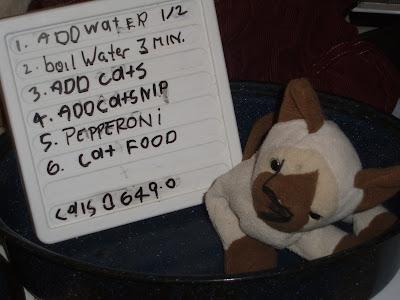 1. ADD WATER 1/2
2. boil Water 3 MIN.
3. ADD CATS
4. ADD CATSNIP
5. PEPPERONI
6. CAT FOOD